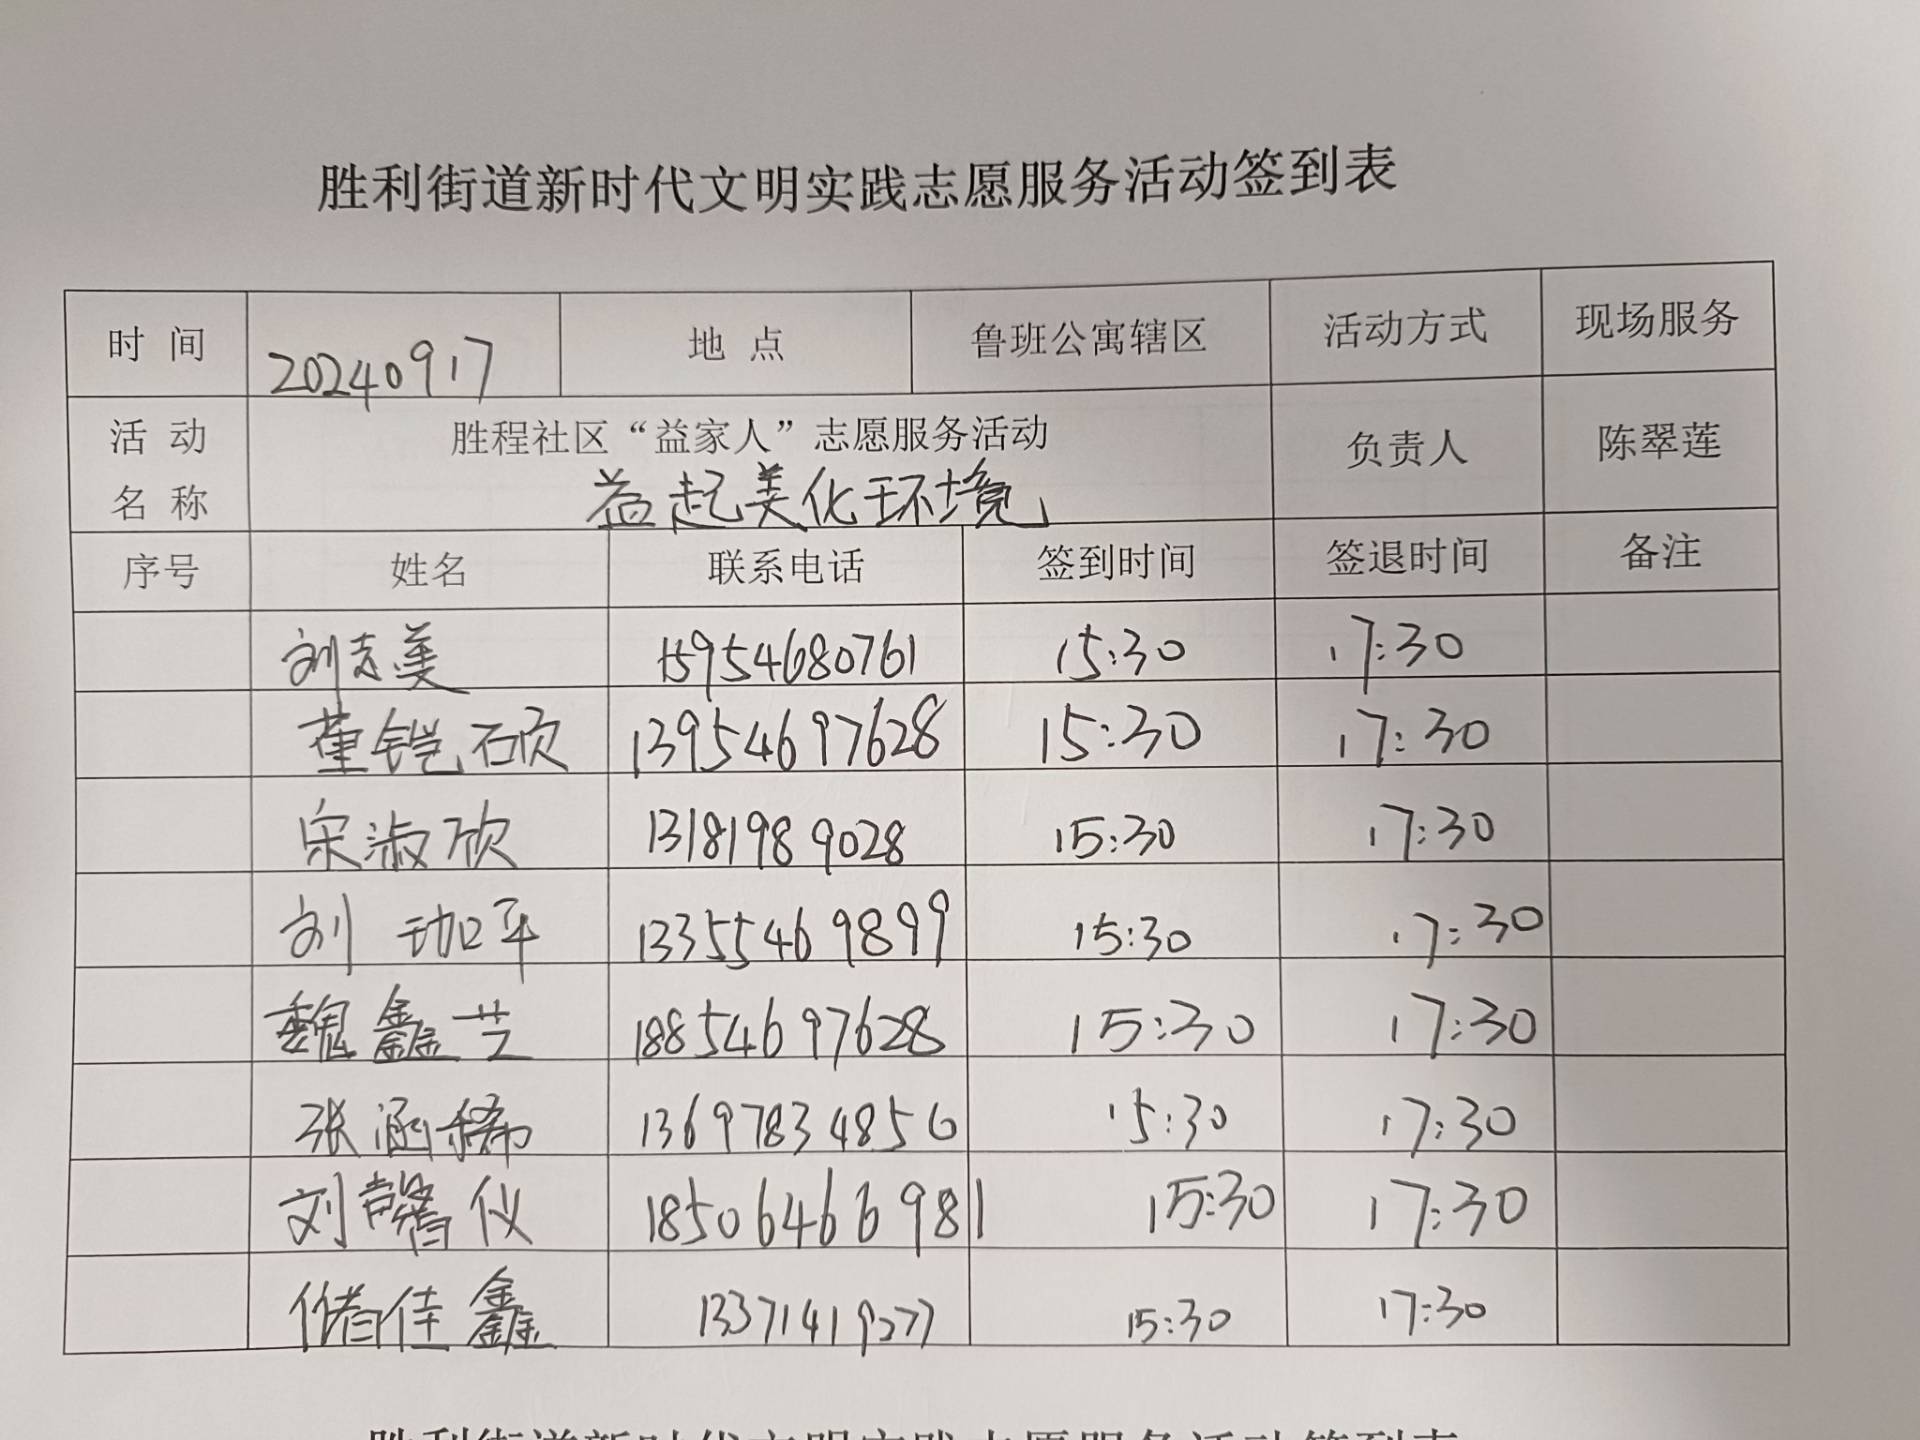 胜利街道新时代文明实践志愿服务活动签到表
时 间 20240917 地 点 鲁班公寓辖区 活动方式 现场服务
活 动 名 称 胜程社区“益家人”志愿服务活动 负责人 陈翠莲
益起美化环境
序号 姓名 联系电话 签到时间 签退时间 备注
刘志美 15954680761 15:30 17:30
董铠硕 13954697628 15:30 17:30
宋淑欣 13181989028 15:30 17:30
刘珈平 13355469899 15:30 17:30
魏鑫芸 18854697628 15:30 17:30
张涵稀 13697834856 15:30 17:30
刘馨仪 18506466981 15:30 17:30
储佳鑫 13371419277 15:30 17:30
胜利街道新时代文明实践志愿服务活动签到表